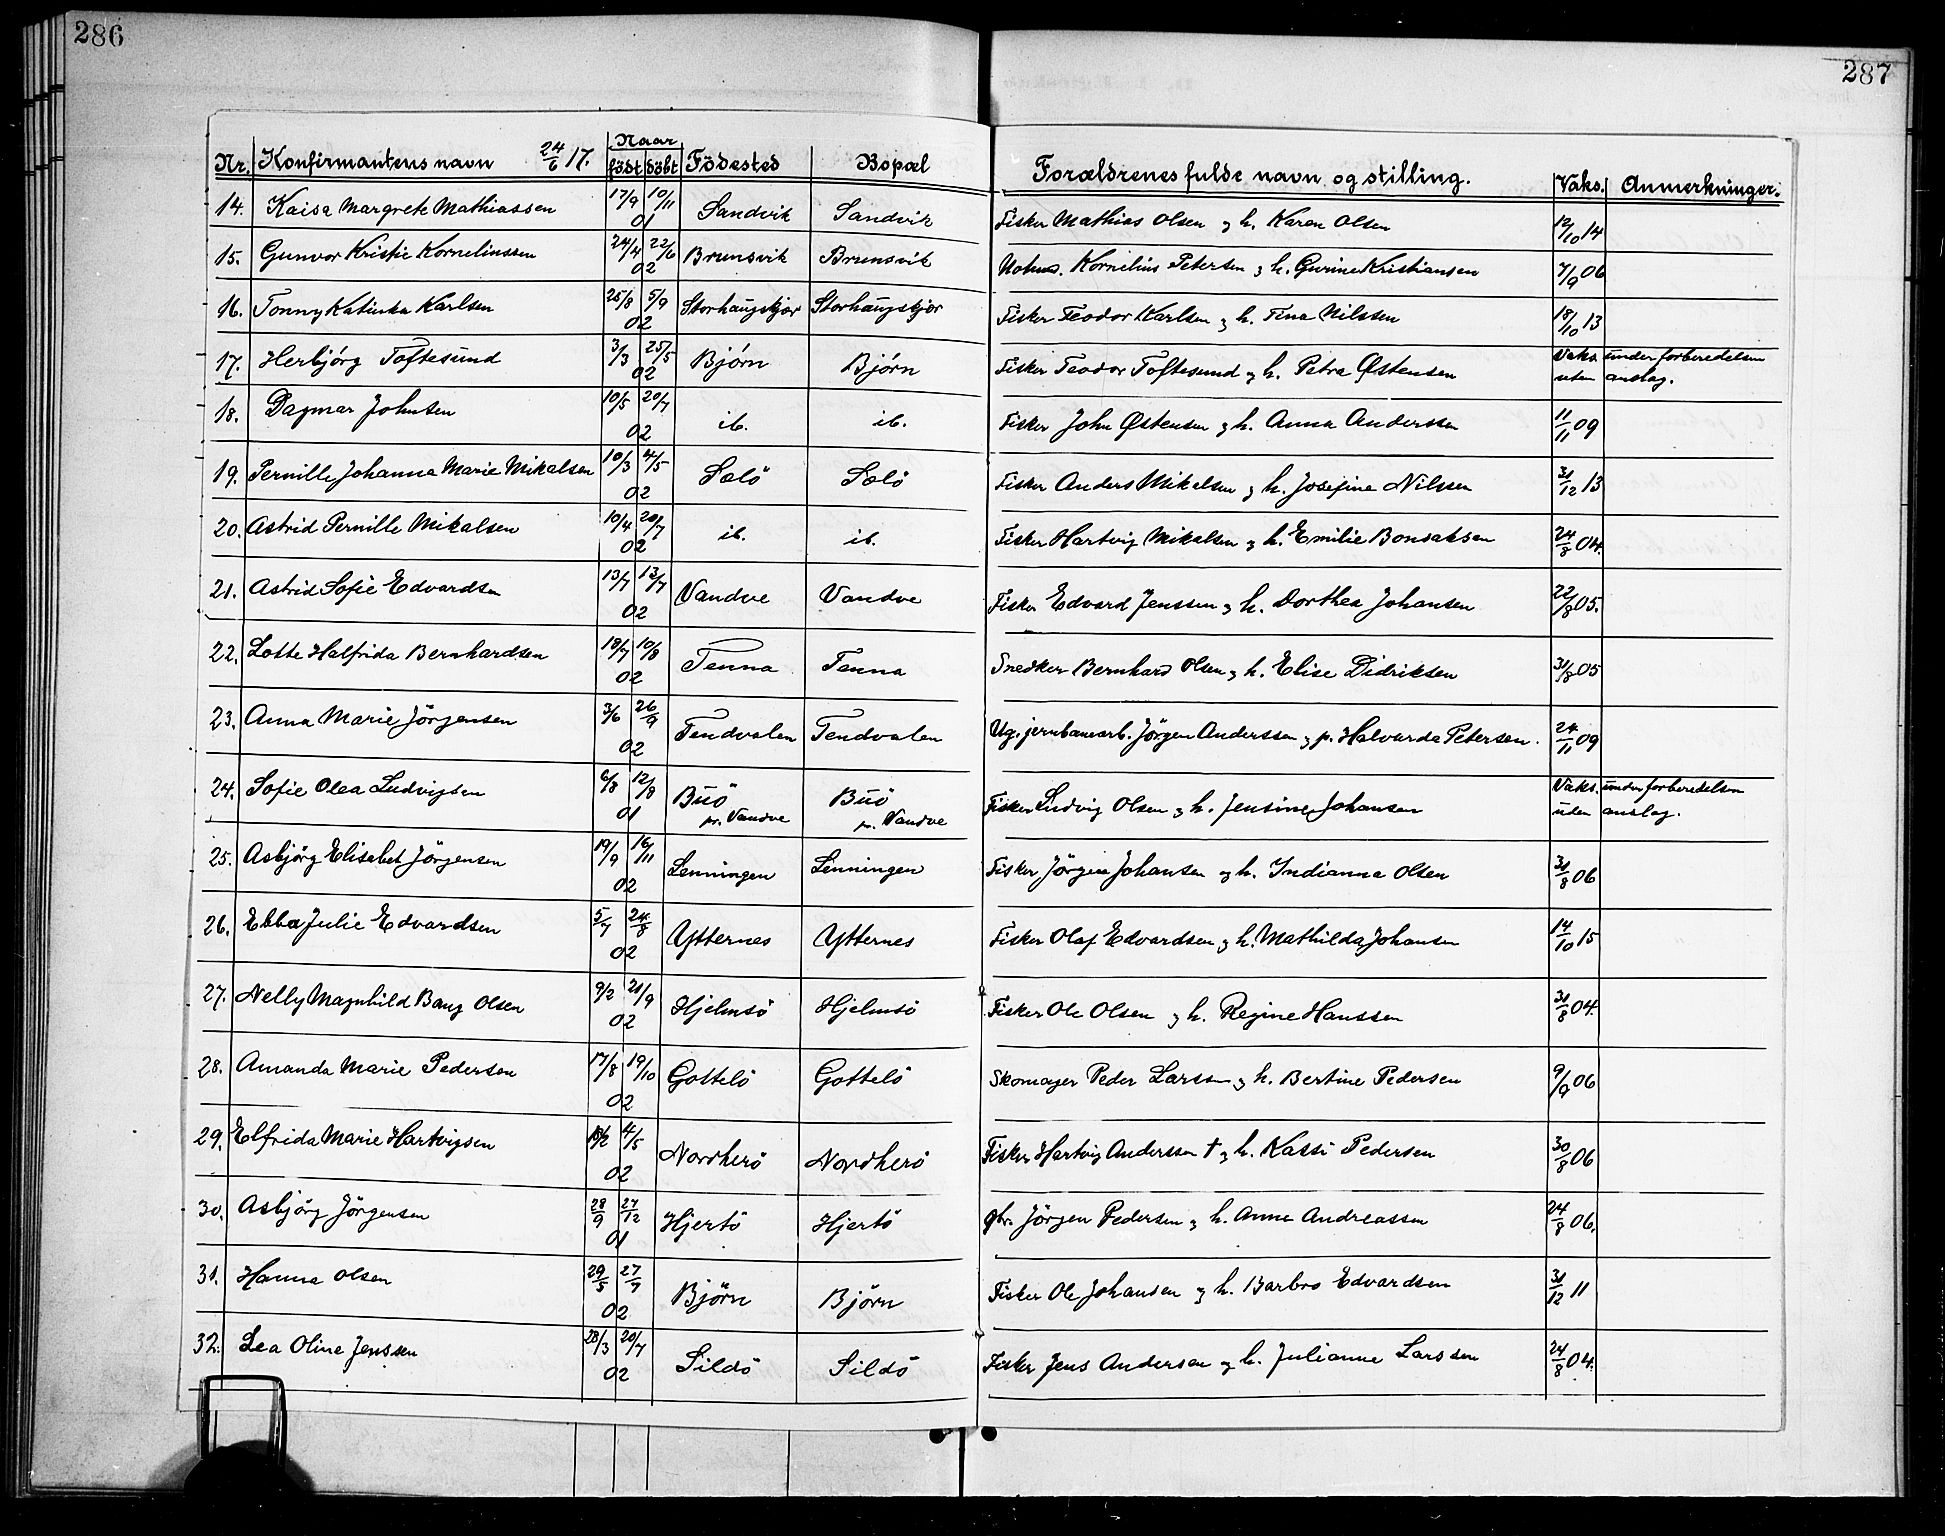 286
287
Nr. Konfirmantens navn 24/6 17. Naar født døbt Fødested Bopæl Forældrenes fulde navn og stilling. Vaks. Anmerkninger.
14. Kaisa Margrete Mathiassen 17/9 10/11 01 Sandvik Sandvik Fisker Mathias Olsen og h. Karen Olsen 12/10 14
15. Gunvor Kristie Kornelinssen 24/4 22/6 02 Brunsvik Brunsvik Kornelius Petersen og h. Gurine Kristiansen 7/9 06
16. Tonny Katinka Karlsen 25/8 5/9 02 Storhaugskjør Storhaugskjør Fisker Teodor Karlsen og h. Tina Nilssen 18/10 13
17. Herbjörg Toftesund 3/3 25/5 02 Bjørn Bjørn Fisker Teodor Toftesund og h. Petra Østensen Vaks. under forberedelsen
uten anslag.
18. Dagmar Johnsen 10/5 20/7 02 ib. ib. Fisker John Østensen og h. Anna Anderssen 11/11 09
19. Pernille Johanna Marie Mikalsen 10/3 4/5 02 Sælö Sælö Fisker Anders Mikalsen og h. Josefine Nilssen 31/12 13
20. Astrid Pernille Mikalsen 10/4 20/7 02 ib. ib. Fisker Hartvig Mikalsen og h. Emilie Bonsaksen 24/8 04.
21. Astrid Sofie Edvardsen 13/7 13/7 02 Vandve Vandve Fisker Edvard Jenssen og h. Dorthea Johansen 22/8 05.
22. Lotte Halfrida Bernhardsen 18/7 10/8 02 Tenna Tenna Snedker Bernhard Olsen og h. Elise Didriksen 31/8 05
23. Anna Marie Jörgensen 3/6 26/9 02 Tendvalen Tendvalen Ug. jernbanearb. Jörgen Anderssen og p. Halvarda Petersen. 24/11 09
24. Sofie Olea Ludvigsen 6/8 12/8 01 Buö Buö Fisker Ludvig Olsen og h. Jensine Johansen Vaks. under forberedelsen
pr. Vandve pr. Vandve uden anslag.
25. Asbjörg Elisabet Jörgensen 19/9 16/11 02 Lenningen Lenningen Fisker Jörgen Johansen og h. Indianna Olsen 31/8 06
26. Ebba Julie Edvardsen 5/7 24/8 02 Ytternes Ytternes Fisker Olaf Edvardsen og h. Mathilda Johansen 14/10 15
27. Nelly Magnhild Bang Olsen 9/2 21/9 02 Hjelmsö Hjelmsö Fisker Ole Olsen og h. Regine Hanssen 31/8 04.
28. Amanda Marie Pedersen 17/8 19/10 02 Gottelö Gottelö Skomager Peder Larssen og h. Bertine Pedersen 9/9 06
29. Elfrida Marie Hartvigsen 4/5 02 Nordherö Nordherö Fisker Hartvig Anderssen † og h. Kassi Pedersen 30/8 06
30. Asbjörg Jörgensen 28/9 27/12 01 Hjertö Hjertö gbr. Jörgen Pedersen og h. Anne Andreassen 24/8 06.
31. Hanna Olsen 29/5 27/7 02 Björn Björn Fisker Ole Johansen og h. Barbro Edvardsen 31/12 11
32. Lea Oline Jenssen 28/3 20/7 02 Sildö Sildö Fisker Jens Andersen og h. Julianne Larssen 24/8 04.